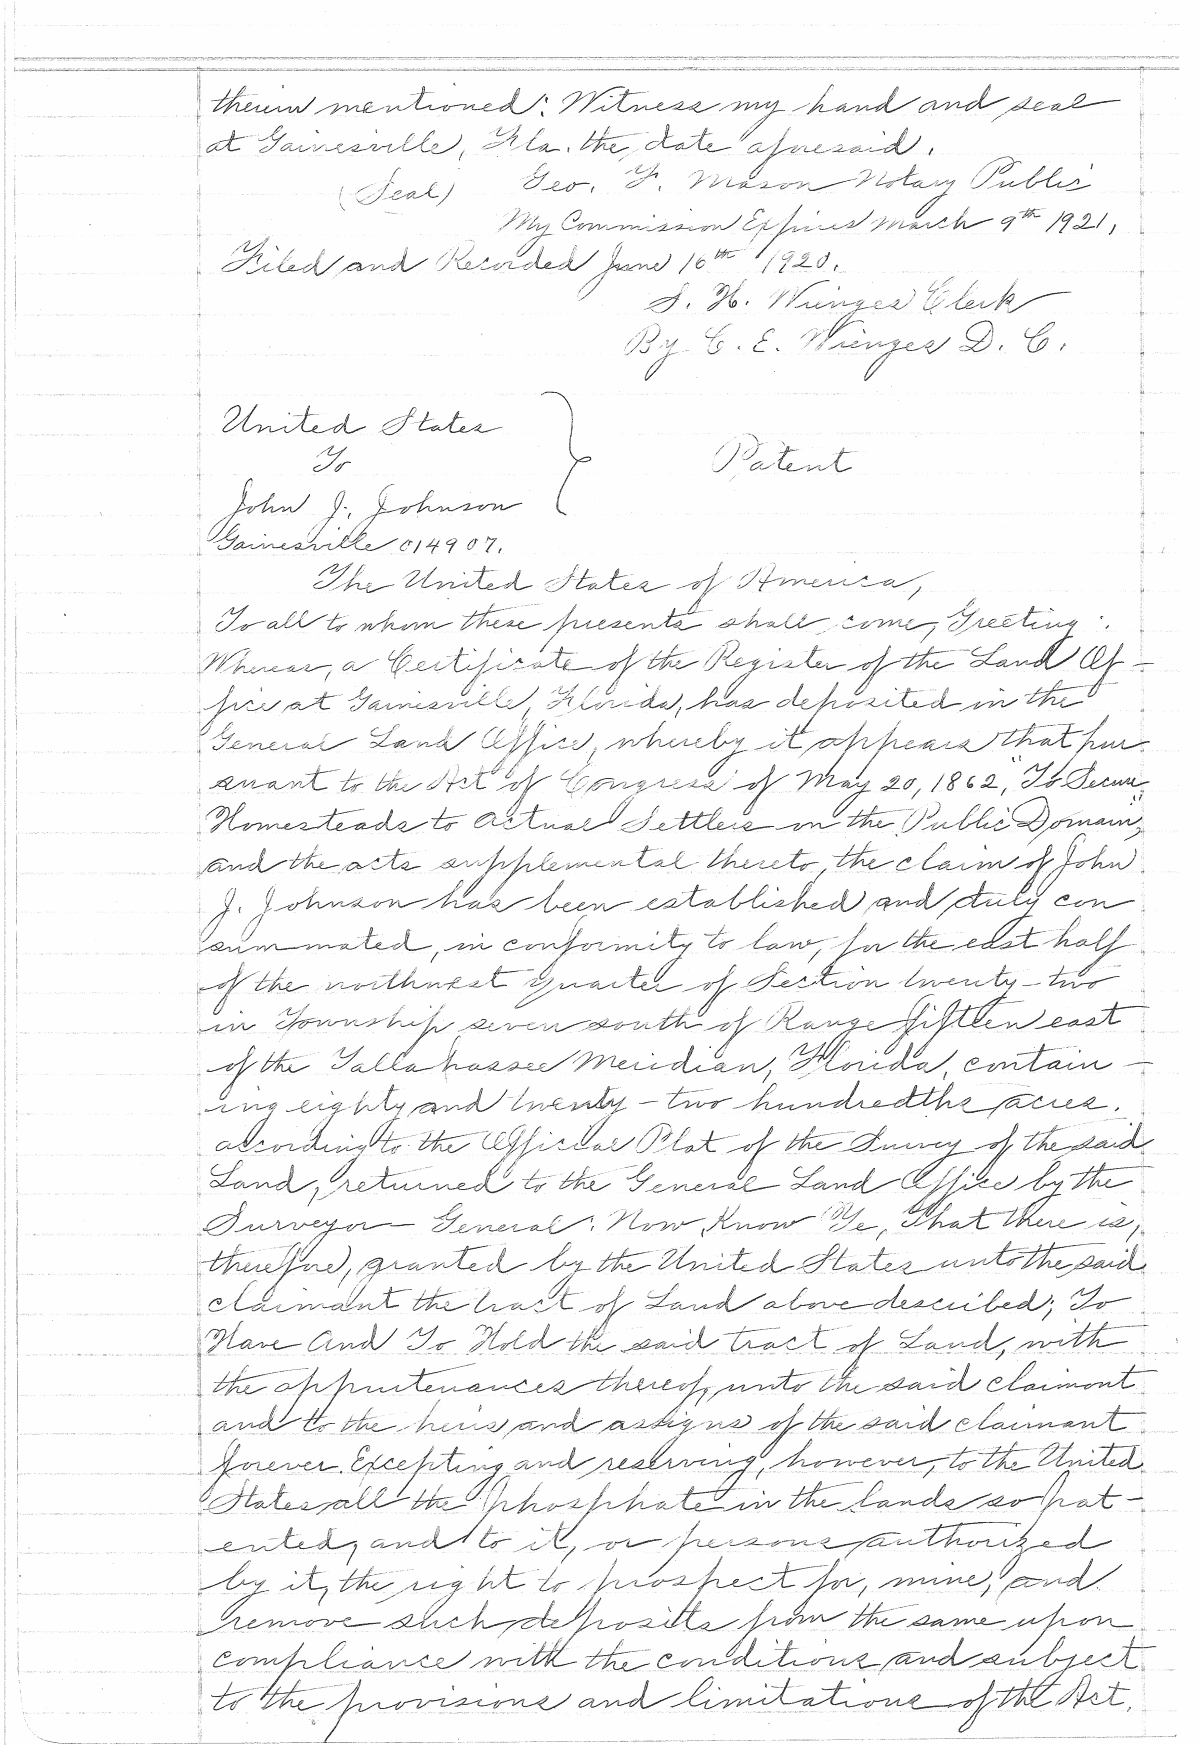 therein mentioned: Witness my hand and seal
at Gainesville, Fla. the date aforesaid.
(Seal) Geo. F. Mason Notary Public
My Commission Expires March 9th 1921,
Filed and Recorded June 16th 1920.
S. H. Wienges Clerk
By C. E. Wienges D. C.
United States
To
Patent
John J. Johnson
Gainesville 014907.
The United States of America,
To all to whom these presents shall come, Greeting:
Whereas, a Certificate of the Register of the Land Of-
fice at Gainesville, Florida, has deposited in the
General Land Office, whereby it appears that pur-
suant to the Act of Congress of May 20, 1862, "To Secure
Homesteads to Actual Settlers on the Public Domain,"
and the acts supplemental thereto, the claim of John
J. Johnson has been established and duly con
summated, in conformity to law, for the east half
of the northwest quarter of Section twenty-two
in Township seven south of Range fifteen east
of the Tallahassee Meridian, Florida, contain-
ing eighty and twenty-two hundredths acres.
according to the Official Plat of the Survey of the said
Land, returned to the General Land Office by the
Surveyor-General: Now Know Ye, That there is,
therefore, granted by the United States unto the said
claimant the tract of Land above described; To
Have And To Hold the said tract of Land, with
the appurtenances thereof, unto the said claimont
and to the heirs and assigns of the said claimant
forever. Excepting and reserving, however, to the United
States all the phosphate in the lands so pat-
ented, and to it, or persons authorized
by it, the right to prospect for, mine, and
remove such deposits from the same upon
compliance with the conditions and subject
to the provisions and limitations of the Act.